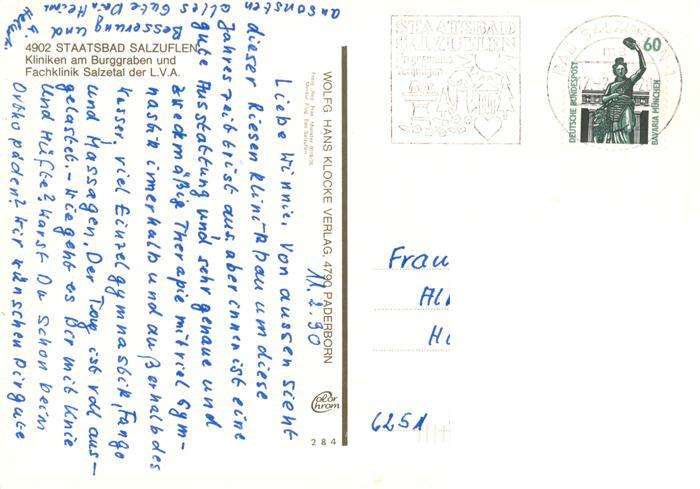 4902 STAATSBAD SALZUFLEN
Kliniken am Burggraben und
Fachklinik Salzetal der L.V.A.
11.2.90
Liebe Winnie. Von aussen sieht
dieser Riesen Klinikbau um diese
Jahreszeit trist aus, aber innen ist eine
gute Ausstattung und sehr genaue und
zweckmäßige Therapie mit viel Gym-
nastik innerhalb und außerhalb des
Wasser, viel Einzelgymnastik, Fango
und Massagen. Der Tag ist voll aus-
gelastet. - Wie geht es Dir mit Knie
und Hüfte? Warst Du schon beim
Orthopäden? Wir wünschen Dir gute
Besserung und
ansonsten alles Gute
WOLFG. HANS KLOCKE VERLAG, 4790 PADERBORN
Color
chrom
284
STAATSBAD
SALZUFLEN
DEUTSCHE BUNDESPOST
60
BAVARIA MÜNCHEN
Frau
6251